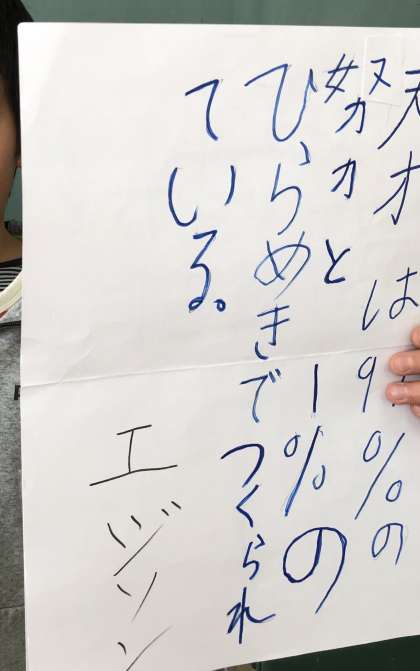 天才は99%の
努力と1%の
ひらめきでつくられ
ている。
エジソン